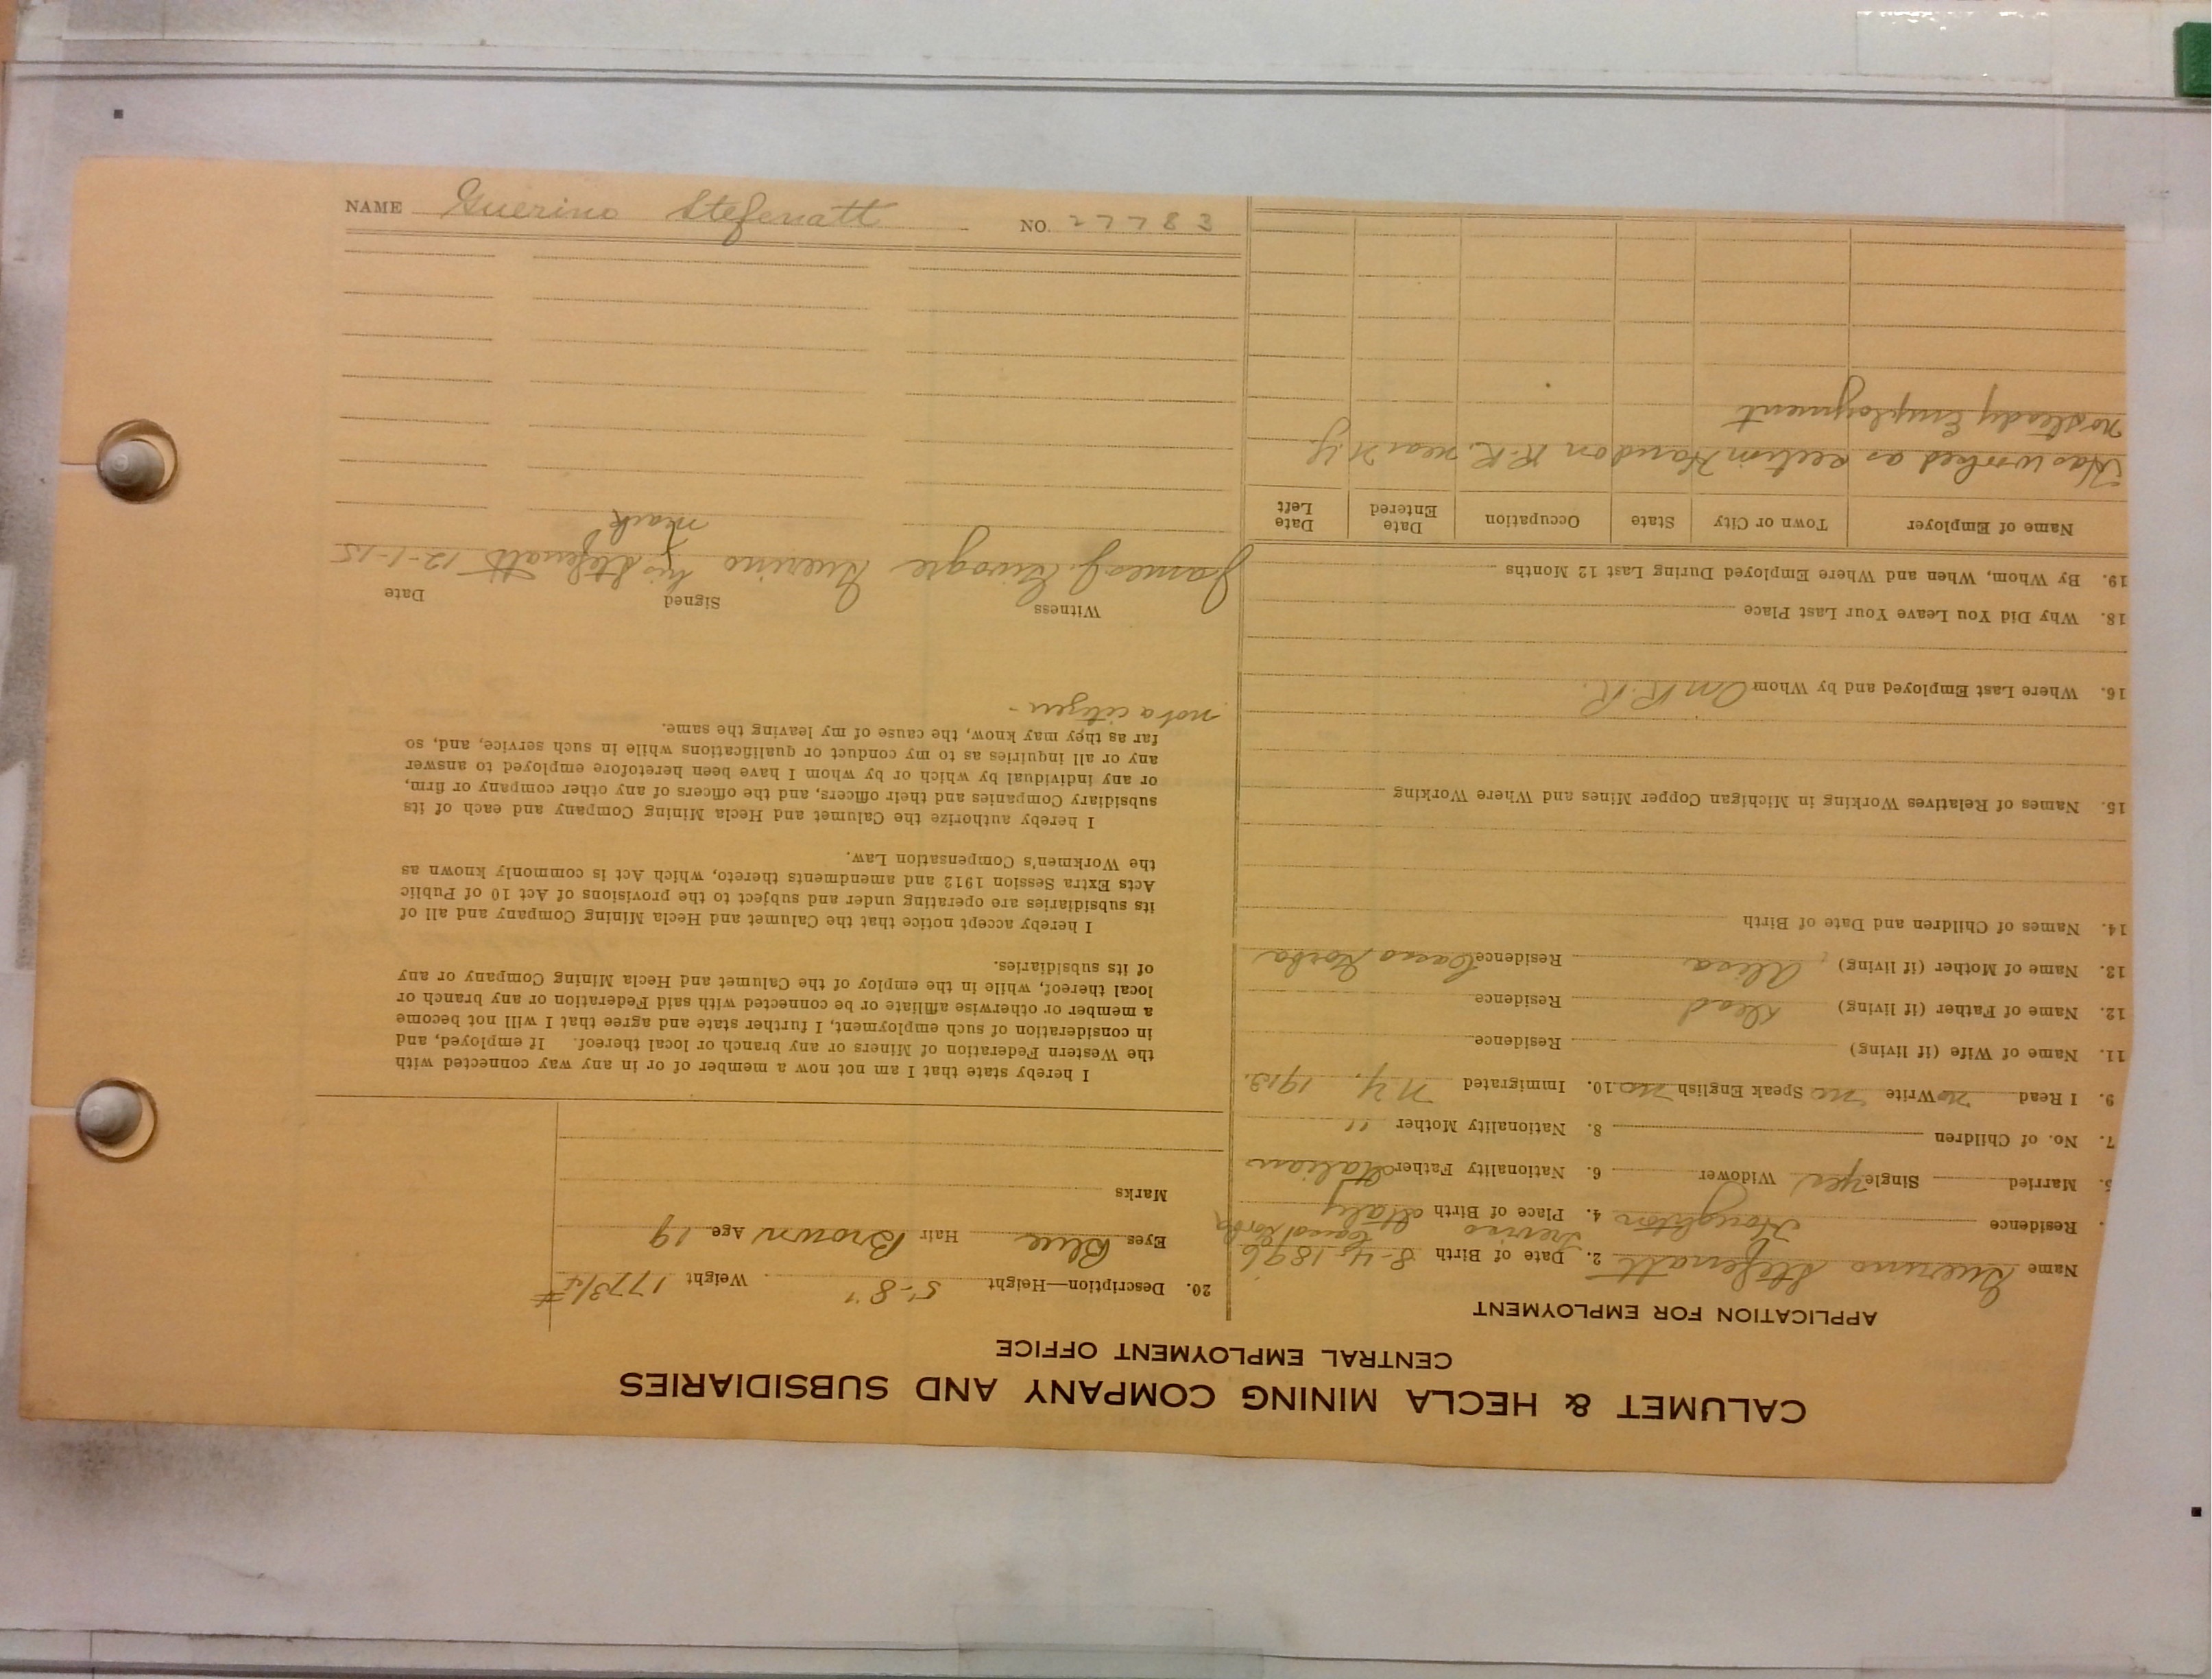 CALUMET & HECLA MINING COMPANY AND SUBSIDIARIES
CENTRAL EMPLOYMENT OFFICE
APPLICATION FOR EMPLOYMENT
Name Guerino Stefenatt 2. Date of Birth 8-4-1896
Residence Houghton 4. Place of Birth Italy
Treviso
5. Married Single yes Widower 6. Nationality Father Italian
7. No. of Children 8. Nationality Mother "
9. I Read no Write no Speak English no 10. Immigrated N.Y. 1913.
11. Name of Wife (if living) Residence
12. Name of Father (if living) Dead Residence
13. Name of Mother (if living) Residence
14. Names of Children and Date of Birth
15. Names of Relatives Working in Michigan Copper Mines and Where Working
16. Where Last Employed and by Whom On R.R.
18. Why Did You Leave Your Last Place
19. By Whom, When and Where Employed During Last 12 Months
Name of Employer Town or City State Occupation Date Entered Date Left
Has worked as section Hand on R.R. near N.Y.
no steady Employment
20. Description—Height 5'-8" Weight 177 3/4 #
Eyes Blue Hair Brown Age 19
Marks
I hereby state that I am not now a member of or in any way connected with
the Western Federation of Miners or any branch or local thereof. If employed, and
in consideration of such employment, I further state and agree that I will not become
a member or otherwise affiliate or be connected with said Federation or any branch or
local thereof, while in the employ of the Calumet and Hecla Mining Company or any
of its subsidiaries.
I hereby accept notice that the Calumet and Hecla Mining Company and all of
its subsidiaries are operating under and subject to the provisions of Act 10 of Public
Acts Extra Session 1912 and amendments thereto, which Act is commonly known as
the Workmen's Compensation Law.
I hereby authorize the Calumet and Hecla Mining Company and each of its
subsidiary Companies and their officers, and the officers of any other company or firm,
or any individual by which or by whom I have been heretofore employed to answer
any or all inquiries as to my conduct or qualifications while in such service, and, so
far as they may know, the cause of my leaving the same.
not a citizen -
Witness Signed Date
James J. Guerino his Stefenatt 12-1-15
mark
NAME Guerino Stefenatt NO. 27783